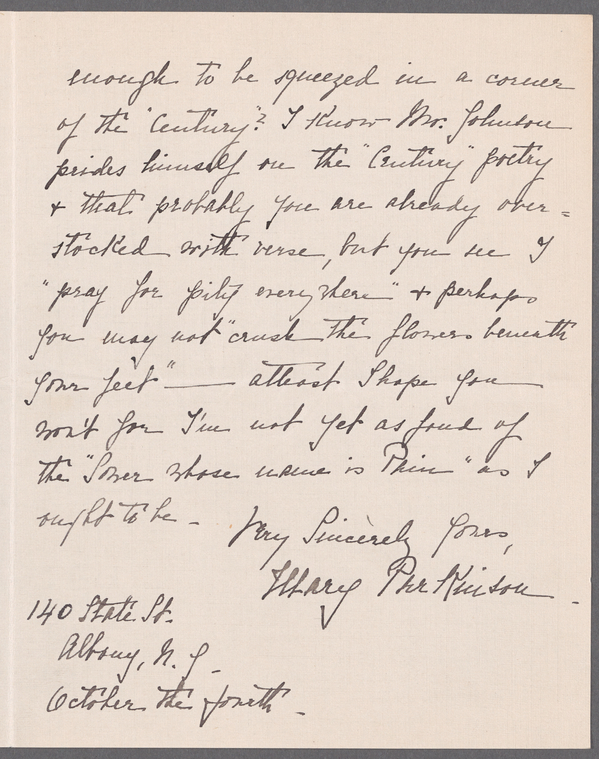 enough to be squeezed in a corner
of the "Century"? I know Mr. Johnson
prides himself on the "Century" poetry
+ that probably you are already over=
stocked with verse, but you see I
"pray for pity everywhere" + perhaps
you may not "crush the flowers beneath
your feet" — atleast I hope you
won't for I'm not yet as fond of
the "Sower whose name is Pain" as I
ought to be -
Very Sincerely yours,
Mary ParKinson.
140 State St.
Albany, N. Y.
October the fourth.